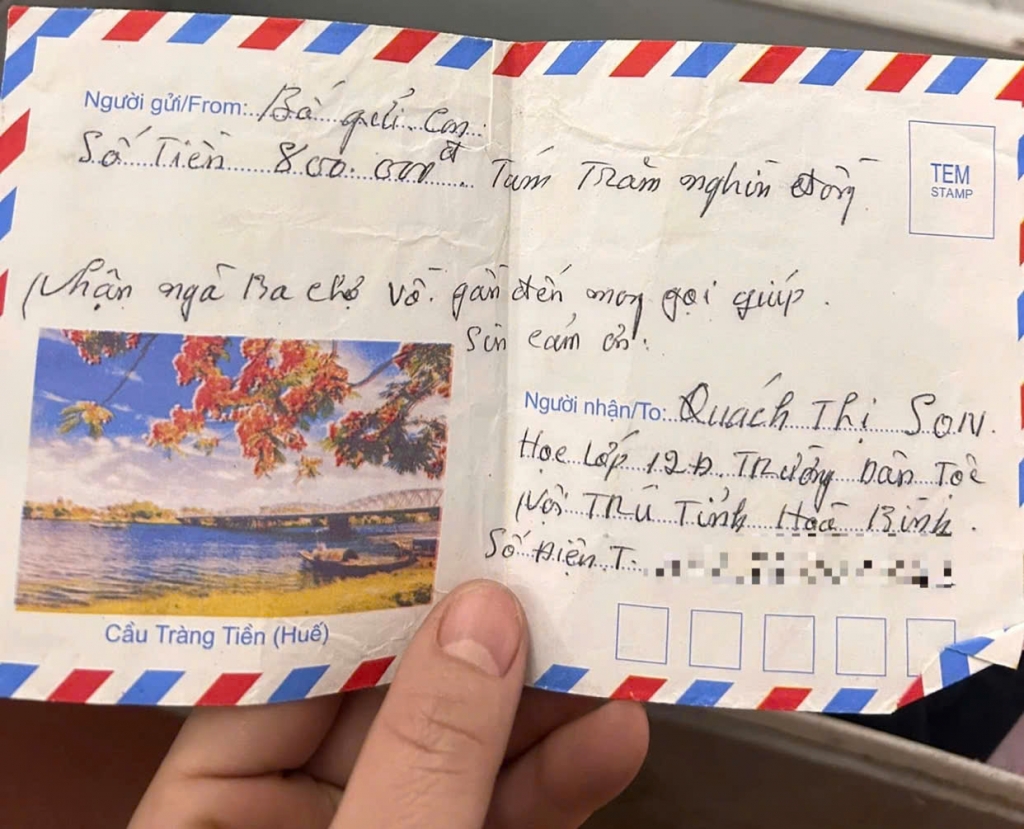 Người gửi/From: Bố gửi Con
Số Tiền 800.000đ Tám Trăm nghìn đồng
TEM
STAMP
Nhận ngã Ba chợ Vồ. gần đến mong gọi giúp.
Sin cám ơn.
Người nhận/To: Quách Thị SON.
Học Lớp 12D Trường Dân Tộc
Nội TRÚ Tỉnh Hoà Bình.
Số Điện T.
Cầu Tràng Tiền (Huế)